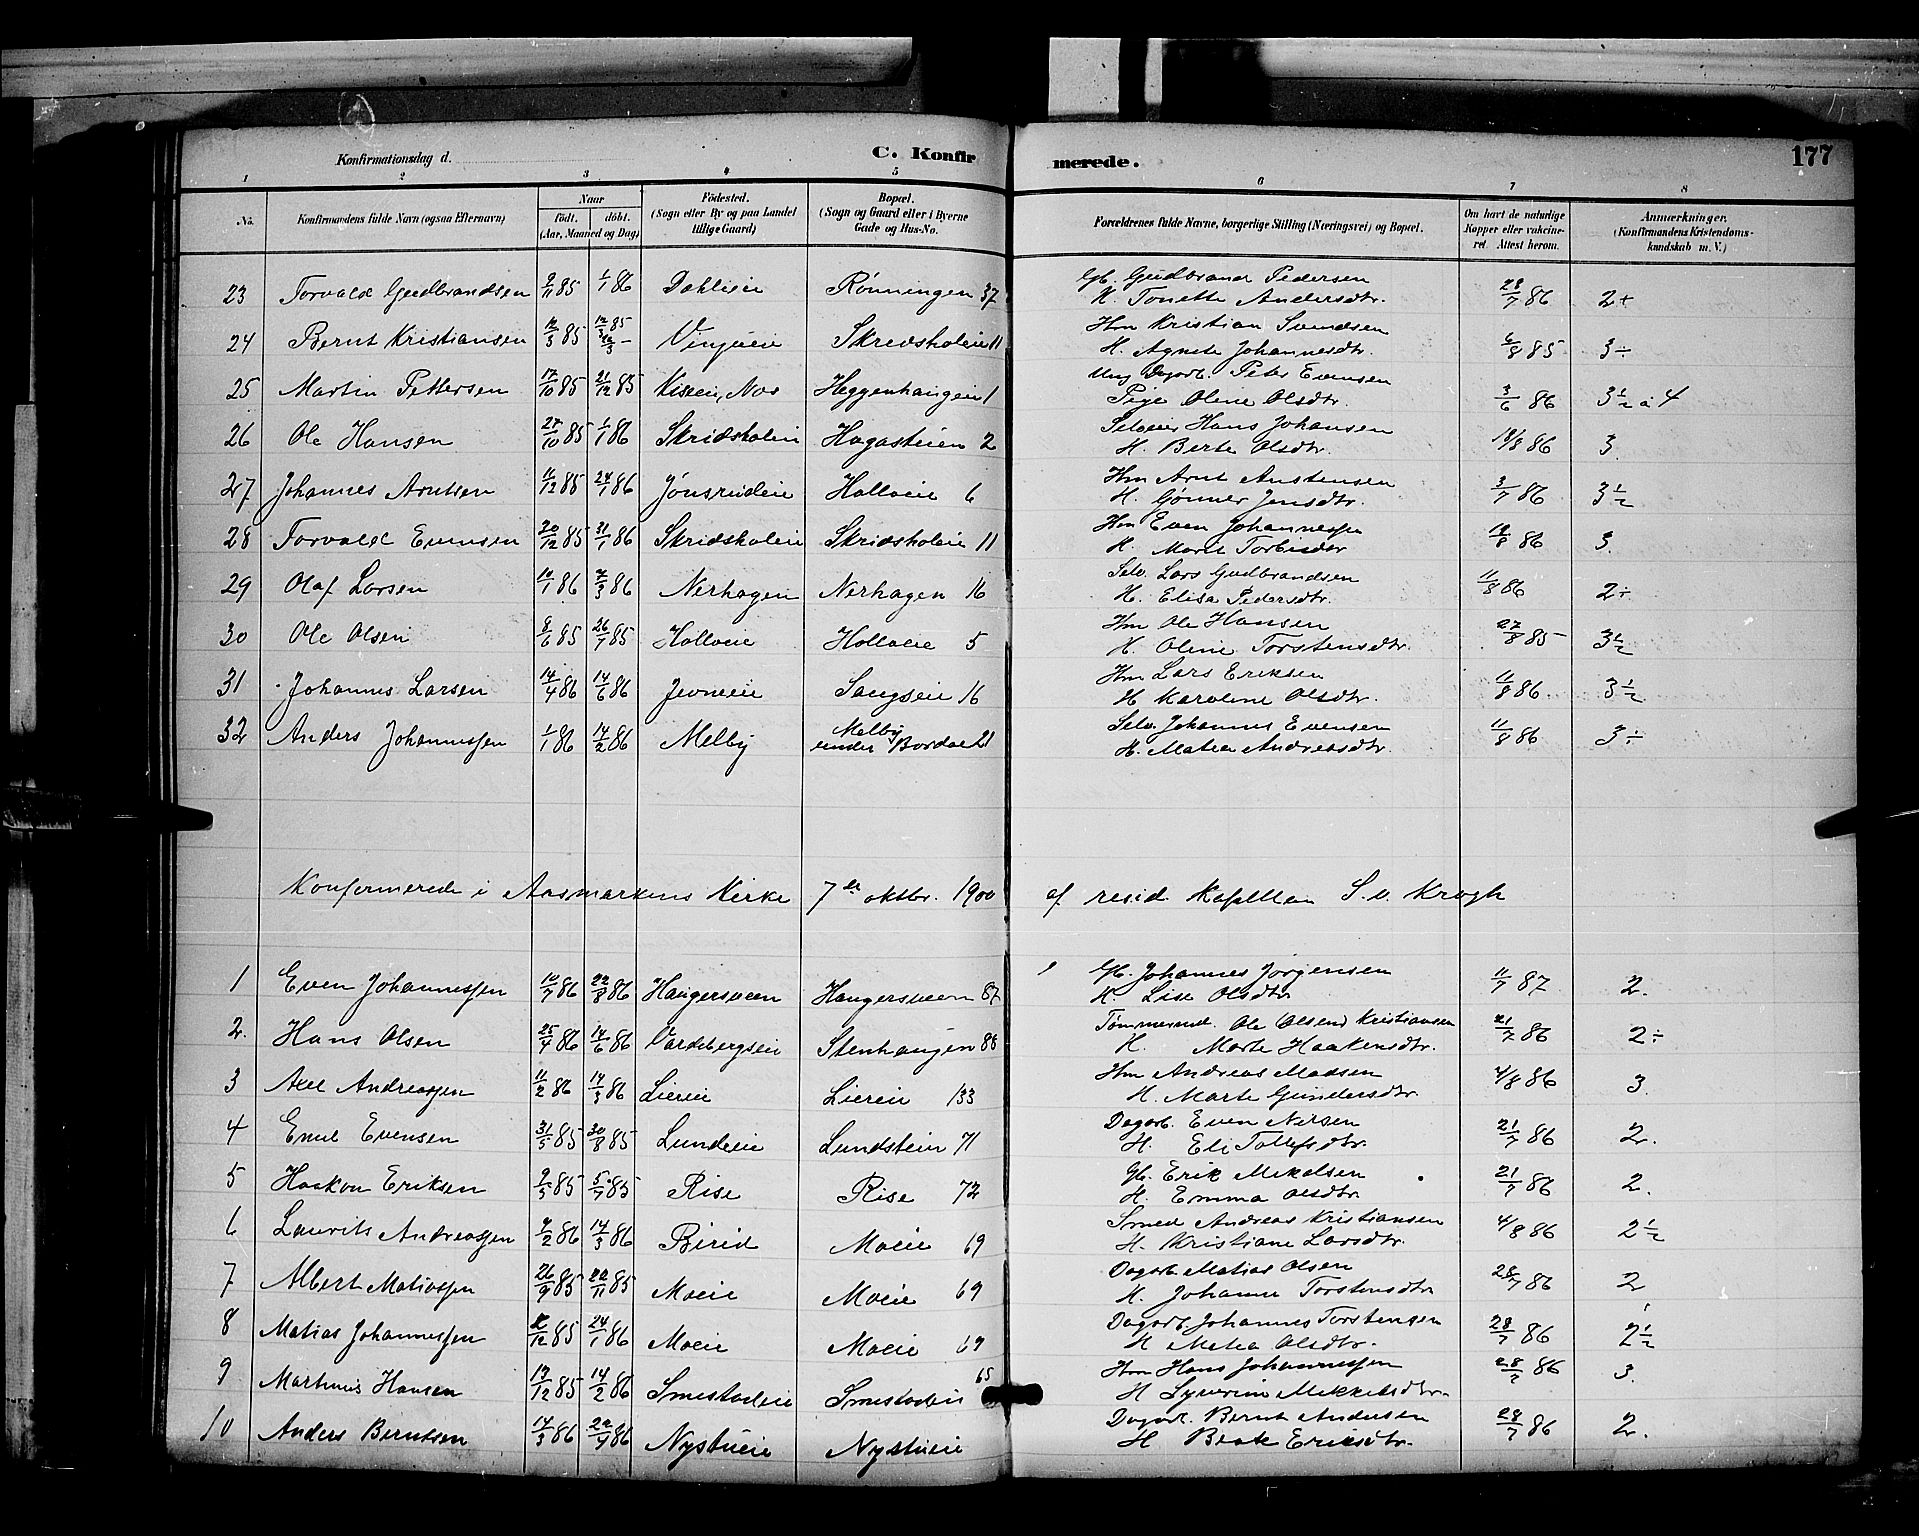 Konfirmationsdag d. C. Konfirmerede. 177
1 2 3 4 5 6 7 8
No. Konfirmandens fulde Navn (ogsaa Efternavn) Naar født. døbt. (Aar, Maaned og Dag) Fødested. (Sogn eller By og paa Landet tillige Gaard) Bopæl. (Sogn og Gaard eller i Byerne Gade og Hus-No. Forældrenes fulde Navne, borgerlige Stilling (Næringsvei) og Bopæl. Om havt de naturlige Kopper eller vakcineret. Attest herom. Anmærkninger. (Konfirmandens Kristendomskundskab m. V.)
23 Torvald Gudbrandsen 2/11 85 1/1 86 Dahlieie Rønningen 37 Gb. Gudbrand Pedersen H. Tonette Andersdtr. 28/7 86 2+
24 Bernt Kristiansen 12/3 85 Vinjueie Skredsholeie 11 Hm Kristian Svendsen H. Agnete Johannesdtr. 6/8 85 3÷
25 Martin Pettersen 17/10 85 21/12 85 Kiseie, Nes Heggenhaugen 1 Ung Dagarb. Peter Evensen Pige Oline Olsdtr. 3/6 86 3½ à 4
26 Ole Hansen 27/10 85 1/1 86 Skridsholeie Hagasteien 2 Selveier Hans Johansen H. Berte Olsdtr. 18/8 86 3.
27 Johannes Arntsen 11/12 85 24/1 86 Jønsrudeie Holloeie 6 Hm Arnt Austensen H. Gønner Jensdtr. 3/7 86 3½
28 Torvald Evensen 20/12 85 31/1 86 Skridsholeie Skridsholeie 11 Hm Even Johannessen H. Marit 18/8 86 3.
29 Olaf Larsen 10/1 86 7/3 86 Nerhagen Nerhagen 16 Selv. Lars Gudbrandsen H. Elisa Pedersdtr. 11/8 86 2÷
30 Ole Olsen 8/6 85 26/7 85 Holloeie Holloeie 5 Hm Ole Hansen H. Oline Torstensdtr. 27/8 85 3½
31 Johannes Larsen 14/4 86 14/6 86 Jevneeie Saugseie 16 Hm Lars Eriksen H Karoline Olsdtr. 11/8 86. 3½
32 Anders Johannessen 1/1 86 14/2 86 Melby Melby under Bordal 21 Selv. Johannes Evensen H. Matea Andreasdtr. 11/8 86 3÷
Konfirmerede i Aasmarkens Kirke 7de oktbr. 1900 af resid. Kapellan S. v. Krogh
1 Even Johannessen 10/7 86 22/8 86 Haugersveen Haugersveen 87 Gb. Johannes Jørgensen H. Lise Olsdtr 11/7 87 2.
2. Hans Olsen 25/4 86 14/6 86 Vardebergseie Stenhaugen 88 Tømmermd. Ole Olsen Kristiansen H. Marte Haakensdtr. 21/7 86 2÷
3 Axel Andreassen 11/2 86 14/3 86 Liereie Liereie 133 Hm Andreas Madsen H. Marte Gundersdtr. 4/8 86 3.
4 Emil Evensen 31/5 85 30/8 85 Lundeie Lundstein 71 Dagarb. Even Nilsen H. Eli Tollefsdtr. 21/7 86 2.
5 Haakon Eriksen 2/5 85 5/7 85 Rise Rise 72 Gb. Erik Mikelsen H. Emma Olsdtr. 21/7 86 2.
6 Laurits Andreassen 7/2 86 14/3 86 Birid Moeie 69 Smed Andreas Kristiansen H. Kristiane Larsdtr. 4/8 86 2½
7 Albert Matiassen 26/9 85 22/11 85 Moeie Moeie 69 Dagarb. Matias Olsen H. Johanne Torstensdtr 28/7 86 2
8 Matias Johannessen 85 24/1 86 Moeie Moeie 69 Dagarb. Johannes Torstensen H Matea Olsdtr. 28/7 86 2½
9 Martinus Hansen 13/12 85 14/2 86 Smestadeie Smestadeie 65 Hm Hans Johannessen H Syverine Mikkelsdtr. 28/7 86 3.
10 Anders Berntsen 14/3 86 22/4 86 Nystueie Nystueie Dagarb. Bernt Andersen H Beate Eriksdtr. 28/7 86 2.